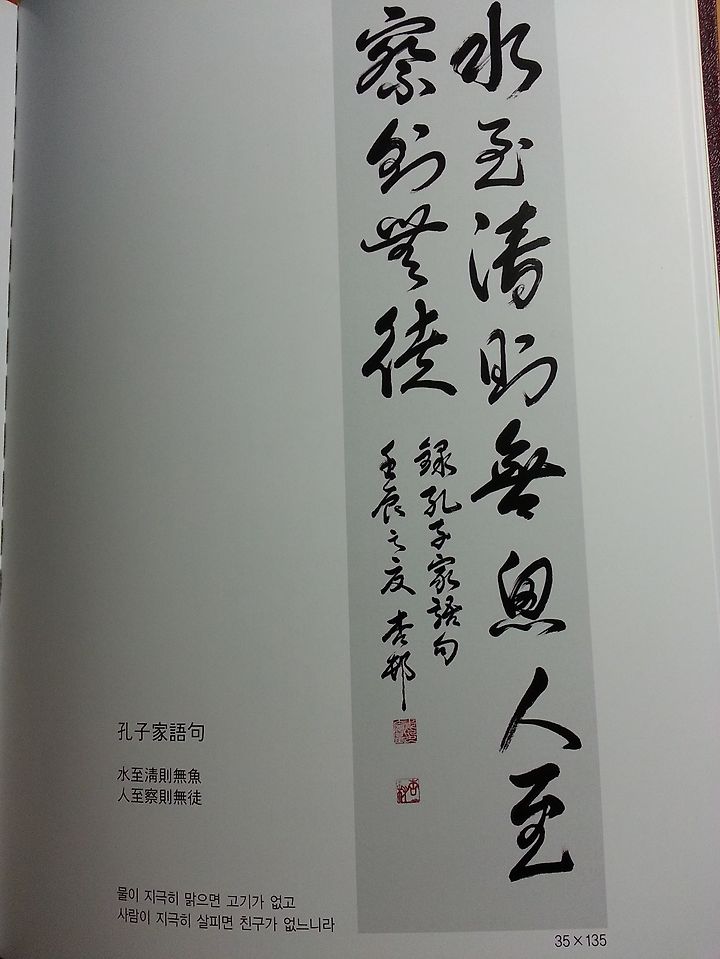 水至清則無魚人至
察則無徒
錄孔子家語句
壬辰之夏 杏邨
孔子家語句
水至淸則無魚
人至察則無徒
물이 지극히 맑으면 고기가 없고
사람이 지극히 살피면 친구가 없느니라
35×135